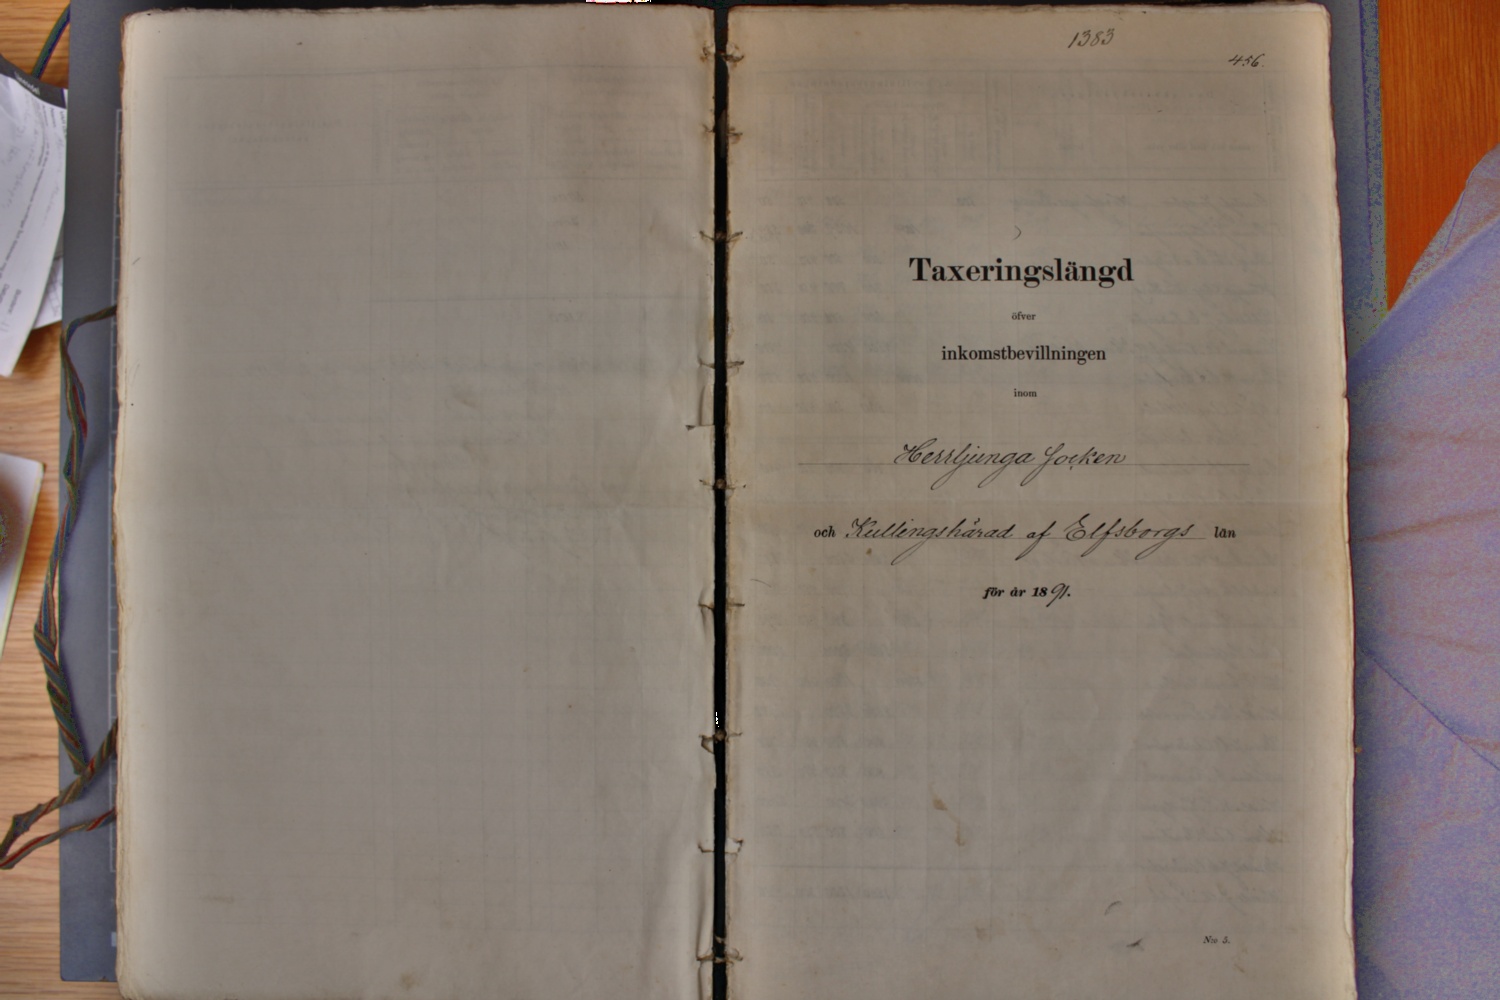 1383
456.
Taxeringslängd
öfver
inkomstbevillningen
inom
Herrljunga Socken
och Kullingshärad af Elfsborgs län
för år 1891.
N:o 5.